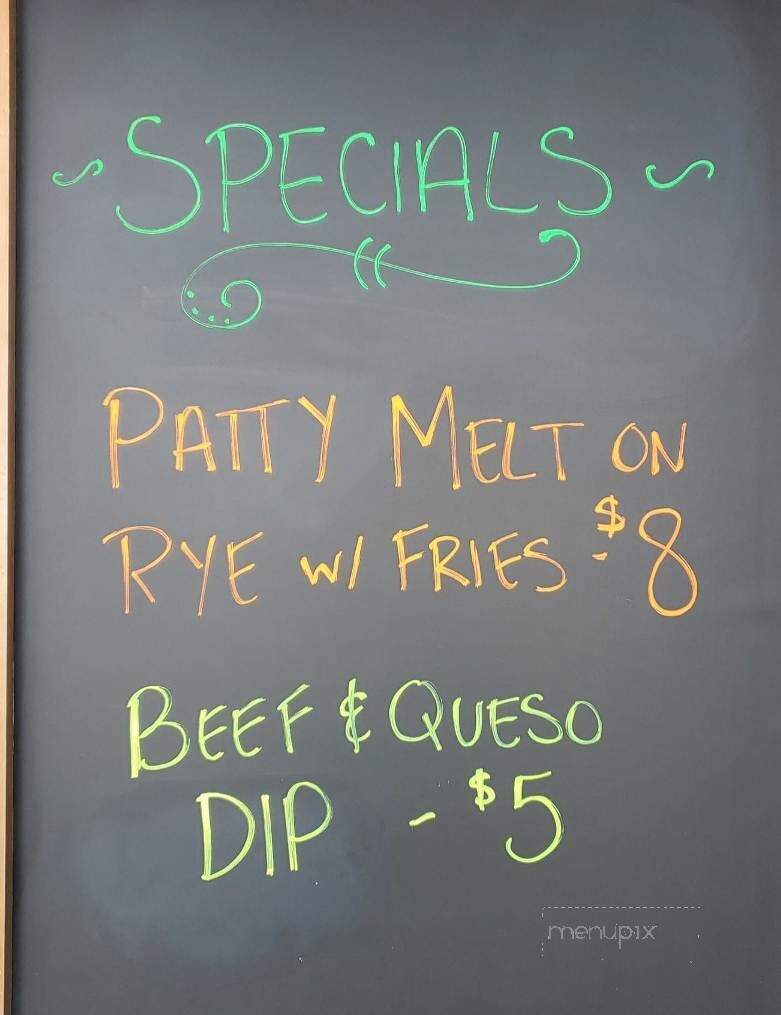 ~ SPECIALS ~
PATTY MELT ON
RYE W/ FRIES - $8
BEEF & QUESO
DIP - $5
menupix